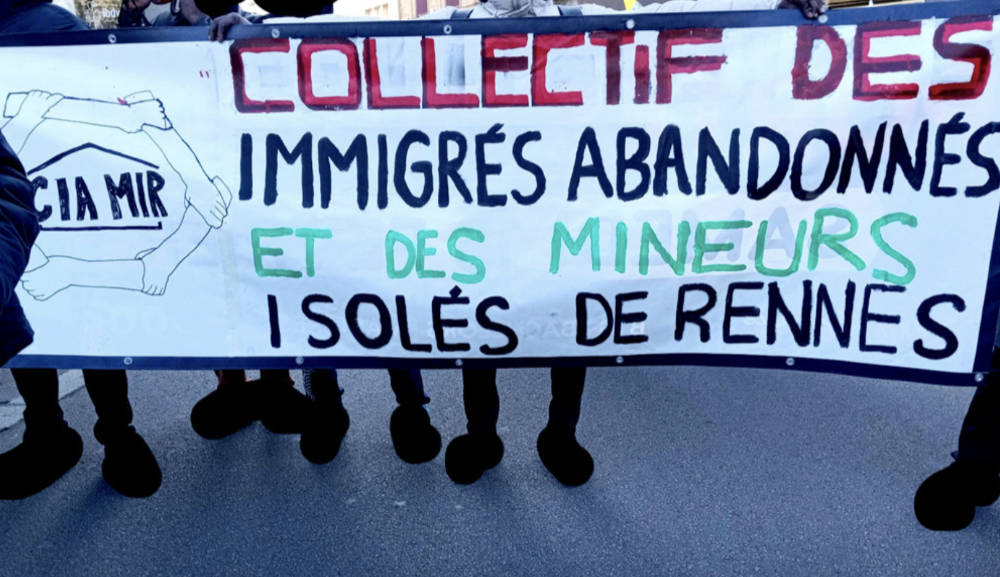 COLLECTIF DES
IMMIGRÉS ABANDONNÉS
CIA MIR
ET DES MINEURS
ISOLÉS DE RENNES